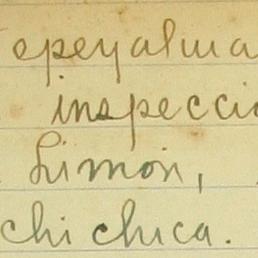 epeyalua
inspecció
Limón,
chichica.